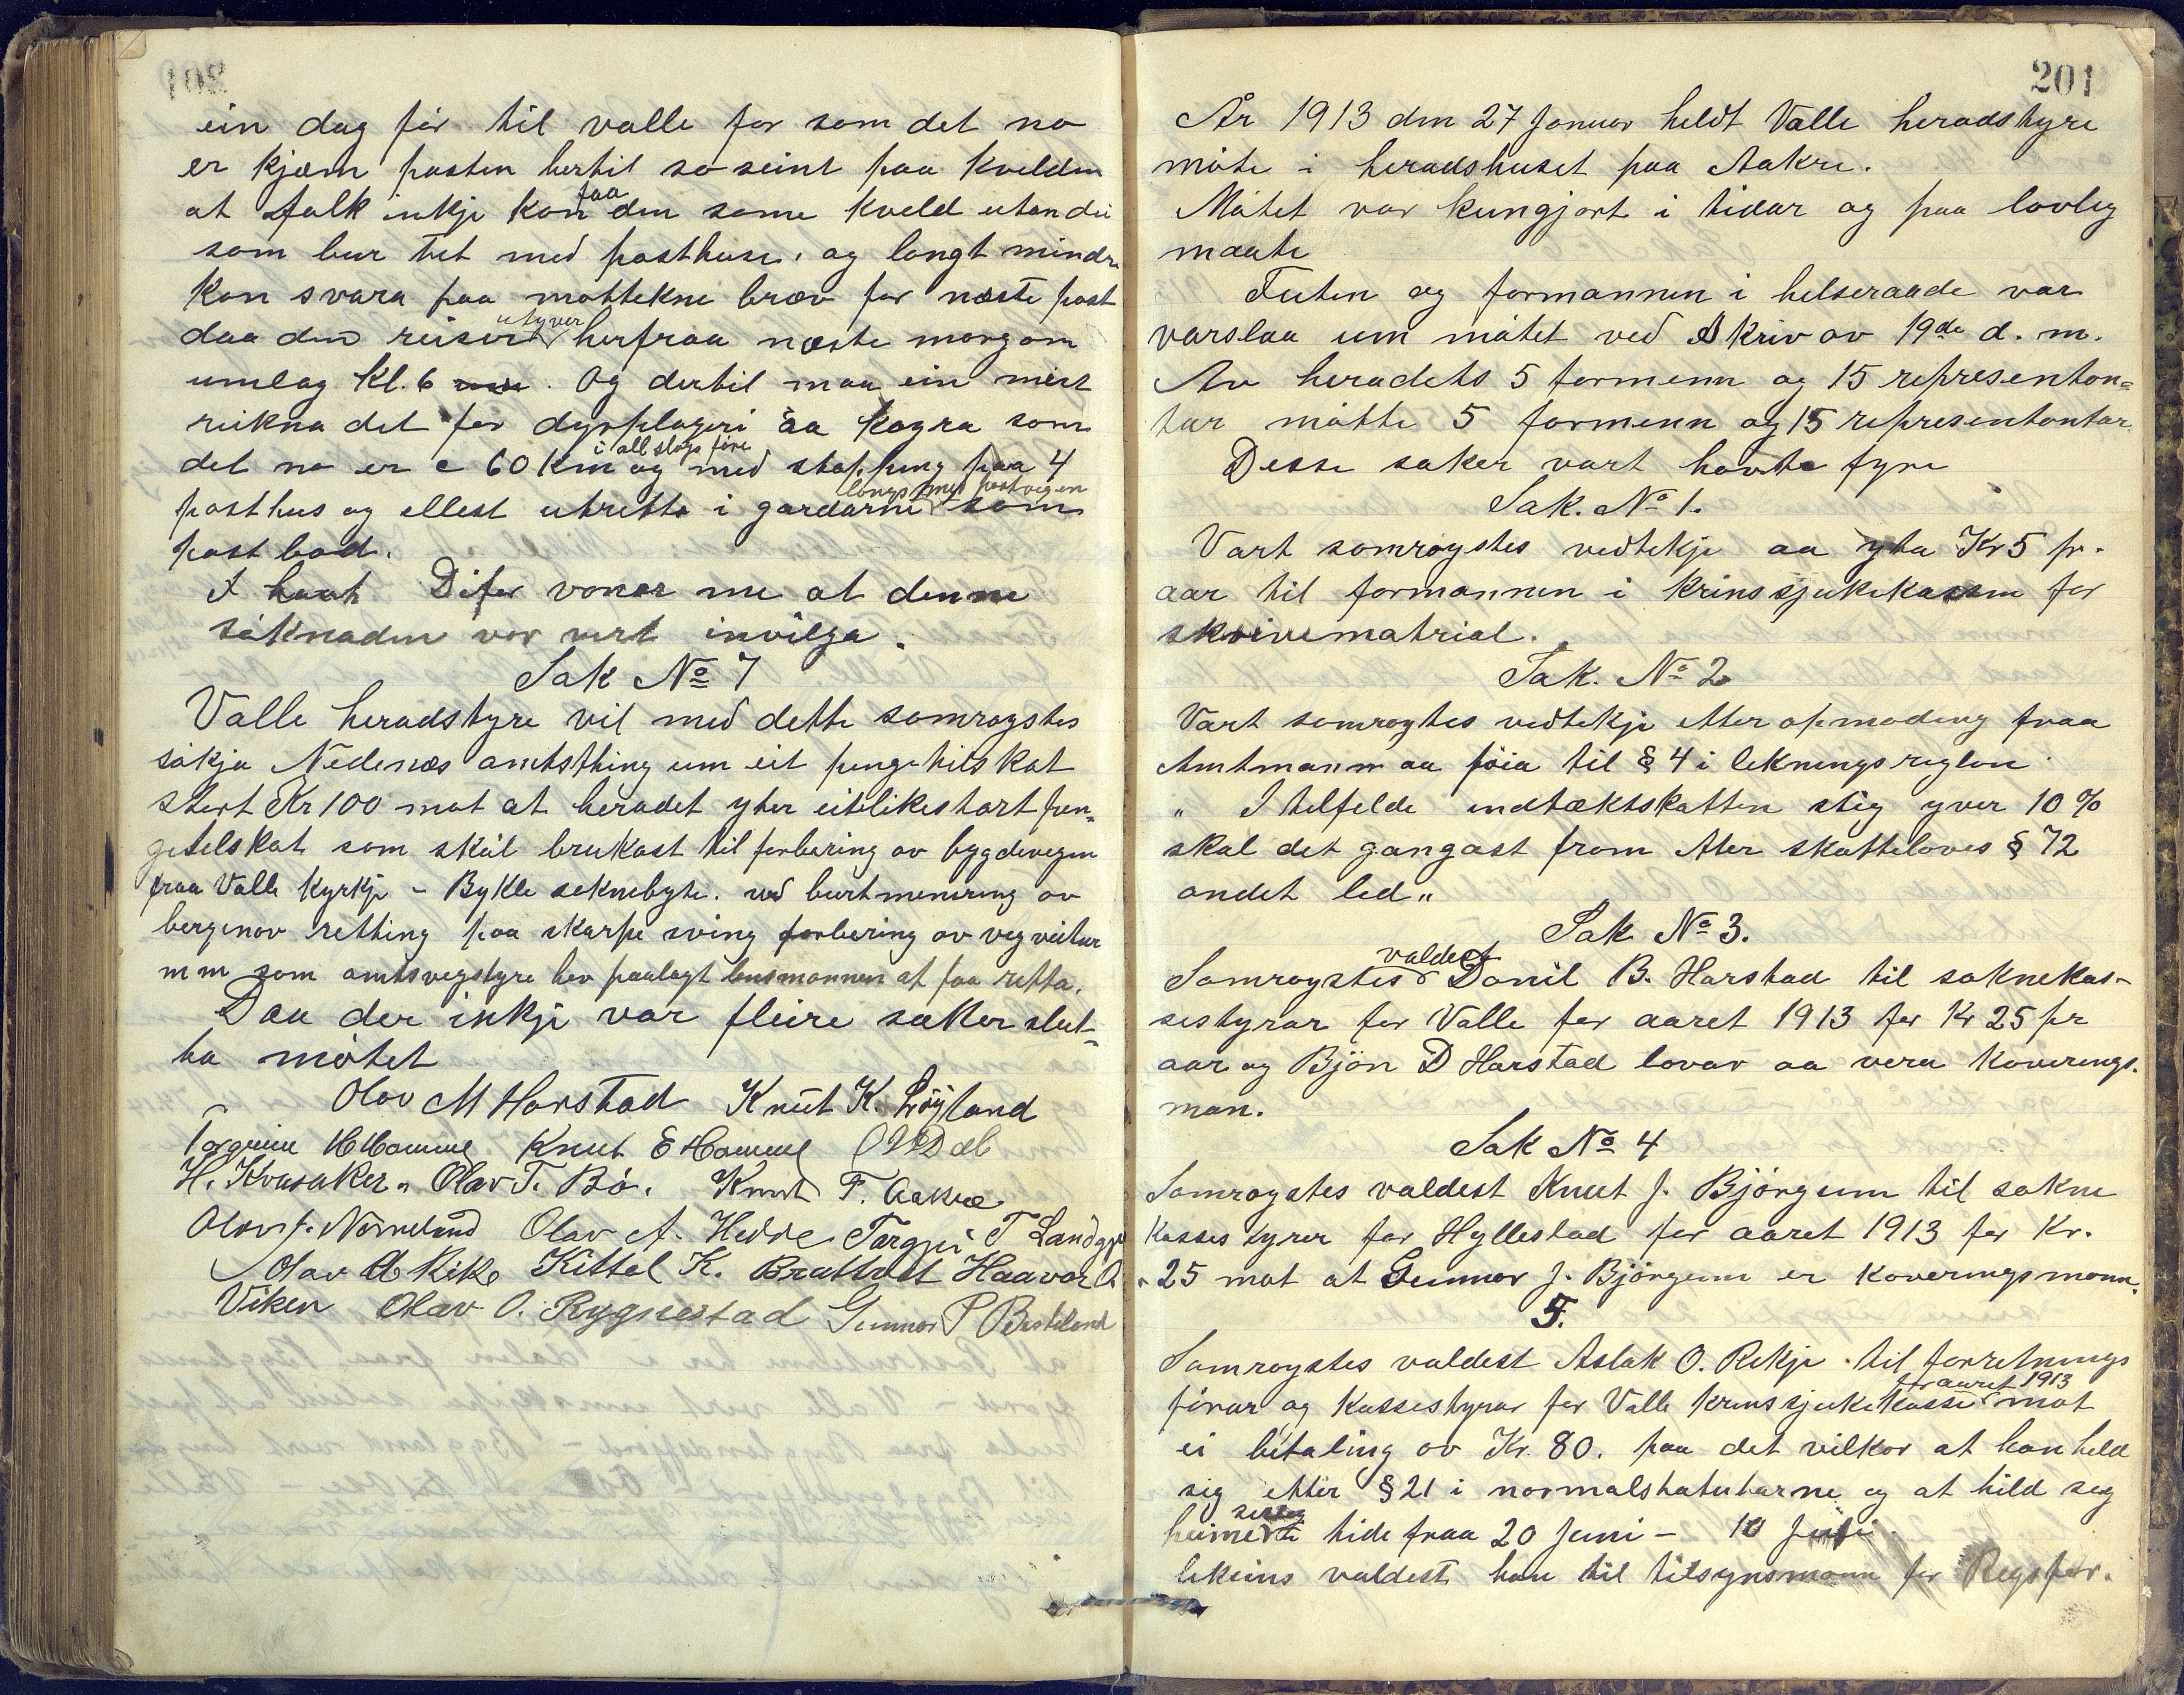 ein dag för til valle for som det no
er kjæm posten hertil so seint paa kvelden
at folk inkje kan faa den same kveld utan dei
som bur tet med posthuse. og langt mindre
kan svara paa mottekne bræv for næste post
daa den reiser utyver herfraa næste morgon
umlag Kl. 6. Og dertil maa ein mest
reikna det for dyrplageri aa køyra som
det no er c 60 Km i all slags före og med stopping paa 4
posthus og ellest utretta i gardarne longs med postvegen som
postbod.
Difor vonar me at denne
söknaden vor vert invilga.
Sak No 7
Valle heradstyre vil med dette samrøystes
søkja Nedenæs amtsthing um eit pengetilskot
stort Kr 100 mot at heradet yter eit likestort pen-
getilskot som skal brukast til forbering av bygdevegen
fraa Valle Kyrkje - Bykle soknebyte. ved burtmenering av
bergenov retting paa skarpe sving forbering av vegveitur
m m som amtsvegstyre hev paalagt lensmannen at faa retta.
Daa der inkje var fleire saker slut-
ta møtet
Olav M Harstad Knut K. Löyland
Torgeim H Homme Knut E Homme O D Dal
H. Kvasaker. Olav T. Bö. Knut F. Aakre
Olav J. Nomeland Olav A. Hedde Targjei T Landgj
Olav A Rike Kittel K. Brattvet Haavar O.
Viken Olav O. Rygnestad Gunnar P Besteland
201
År 1913 den 27 Januar heldt Valle heradstyre
möte i heradshuset paa Aakre.
Mötet var kungjort i tidar og paa lovleg
maate
Futen og formannen i helseraade var
varslaa um mötet ved skriv av 19de d. m.
Av heradets 5 formenn og 15 representan-
tar mötte 5 formenn og 15 representantar.
Desse saker vart havte fyre
Sak. No 1.
Vart samrøystes vedtekje aa yta Kr 5 pr.
aar til formannen i krinssjukekassen for
skrivematrial.
Sak. No 2
Vart samrøystes vedtekje etter opmoding fraa
Amtmann aa föia til § 4 i lekningsreglan
„ I telfelde indtæktskatten stig yver 10 %
skal det gangast fram etter skattelovens § 72
andet led „
Sak No 3.
Samrøystes valdest Danil B. Harstad til soknekas-
sestyrar for Valle for aaret 1913 for Kr 25 pr
aar og Bjön D Harstad lovar aa vera Kaverings-
man.
Sak No 4
Samrøystes valdest Knut J. Björgum til sokne
kassestyrer for Hyllestad for aaret 1913 for Kr.
25 mot at Gunnar J. Björgum er Kaveringsmann.
5.
Samrøystes valdest Aslak O. Rikje til forretnings
förar og Kassestyrar for Valle krinssjukekasse for aaret 1913 mot
ei betaling av Kr. 80. paa det vilkor at han held
sig etter § 21 i normalstatutarne og at hild seg
heime tide fraa 20 Juni - 10 Juli.
likeins valdest han til tilsynsmann for Regsfor.